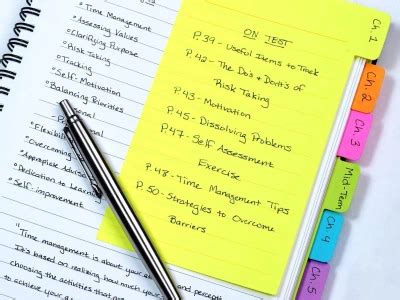 - Time Management
- Assessing Values
- Clarifying Purpose
- Risk Taking
- Tracking
- Self-Motivation
- Balancing Priorities
Personal
- Flexibil
- Overcoming
- Appropriate Advis
- Dedication to Learn
- Self-improvement
"Time management is about your at
It's based on realizing how much your
choosing the activities that
to achieve your
and percept
ON TEST
P.39 - Useful Items to Track
P.42 - The Do's & Dont's of
Risk Taking
P.43 - Motivation
P.45 - Dissolving Problems
P.47 - Self Assessment
Exercise
P.48 - Time Management Tips
P.50 - Strategies to Overcome
Barriers
Ch.1
Ch.2
Ch.3
Mid-Term
Ch.4
Ch.5